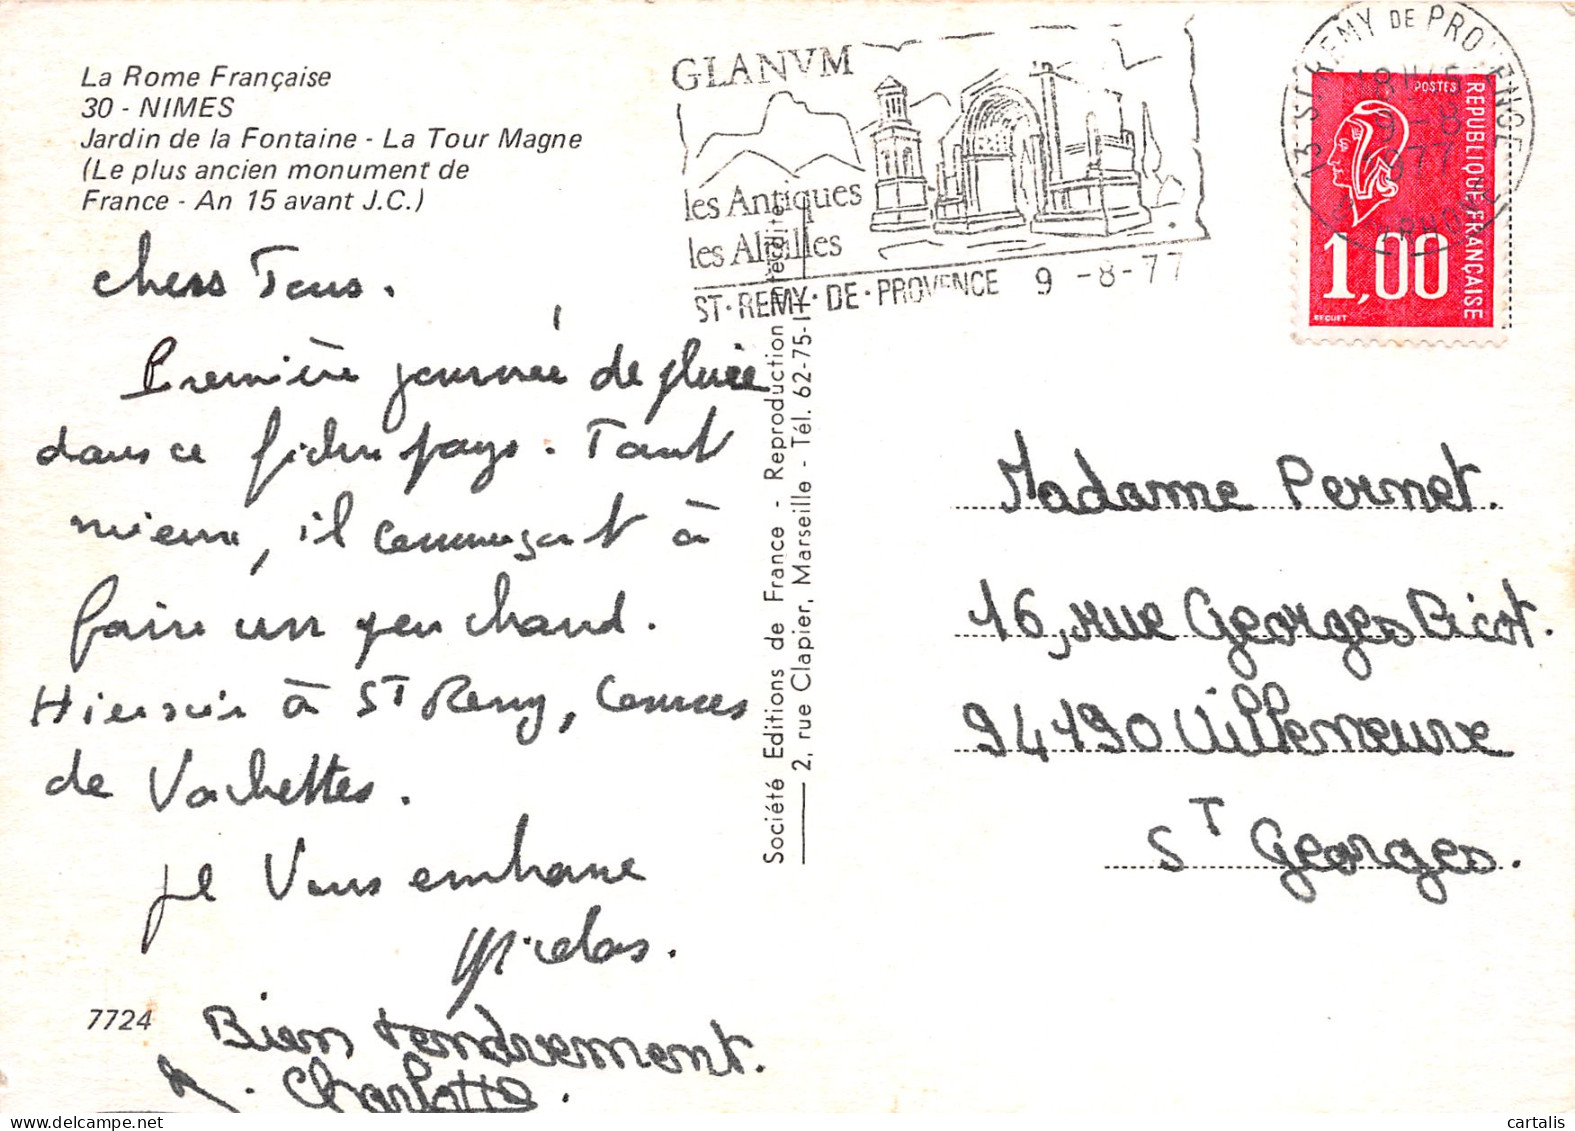 La Rome Française
30 - NIMES
Jardin de la Fontaine - La Tour Magne
(Le plus ancien monument de
France - An 15 avant J.C.)
chers Tous.
Première journée de pluie
dans ce fichu pays. Tant
mieux, il commençait à
faire un peu chaud.
Hier soir à ST Remy, Courses
de Vachettes.
je Vous embrasse
Nicolas.
Bien tendrement.
Charlotte.
7724
Société Editions de France - Reproduction interdite
2, rue Clapier, Marseille - Tél. 62-75-1
GLANVM
les Antiques
les Alpilles
ST·REMY·DE·PROVENCE 9 -8-77
13 ST REMY DE PROVENCE
18H45
9-8
1977
B. DU RHONE
POSTES
REPUBLIQUE FRANÇAISE
1,00
BEQUET
Madame Pernet.
16, rue Georges Bicot.
94490 Villeneuve
ST Georges.
cartalis